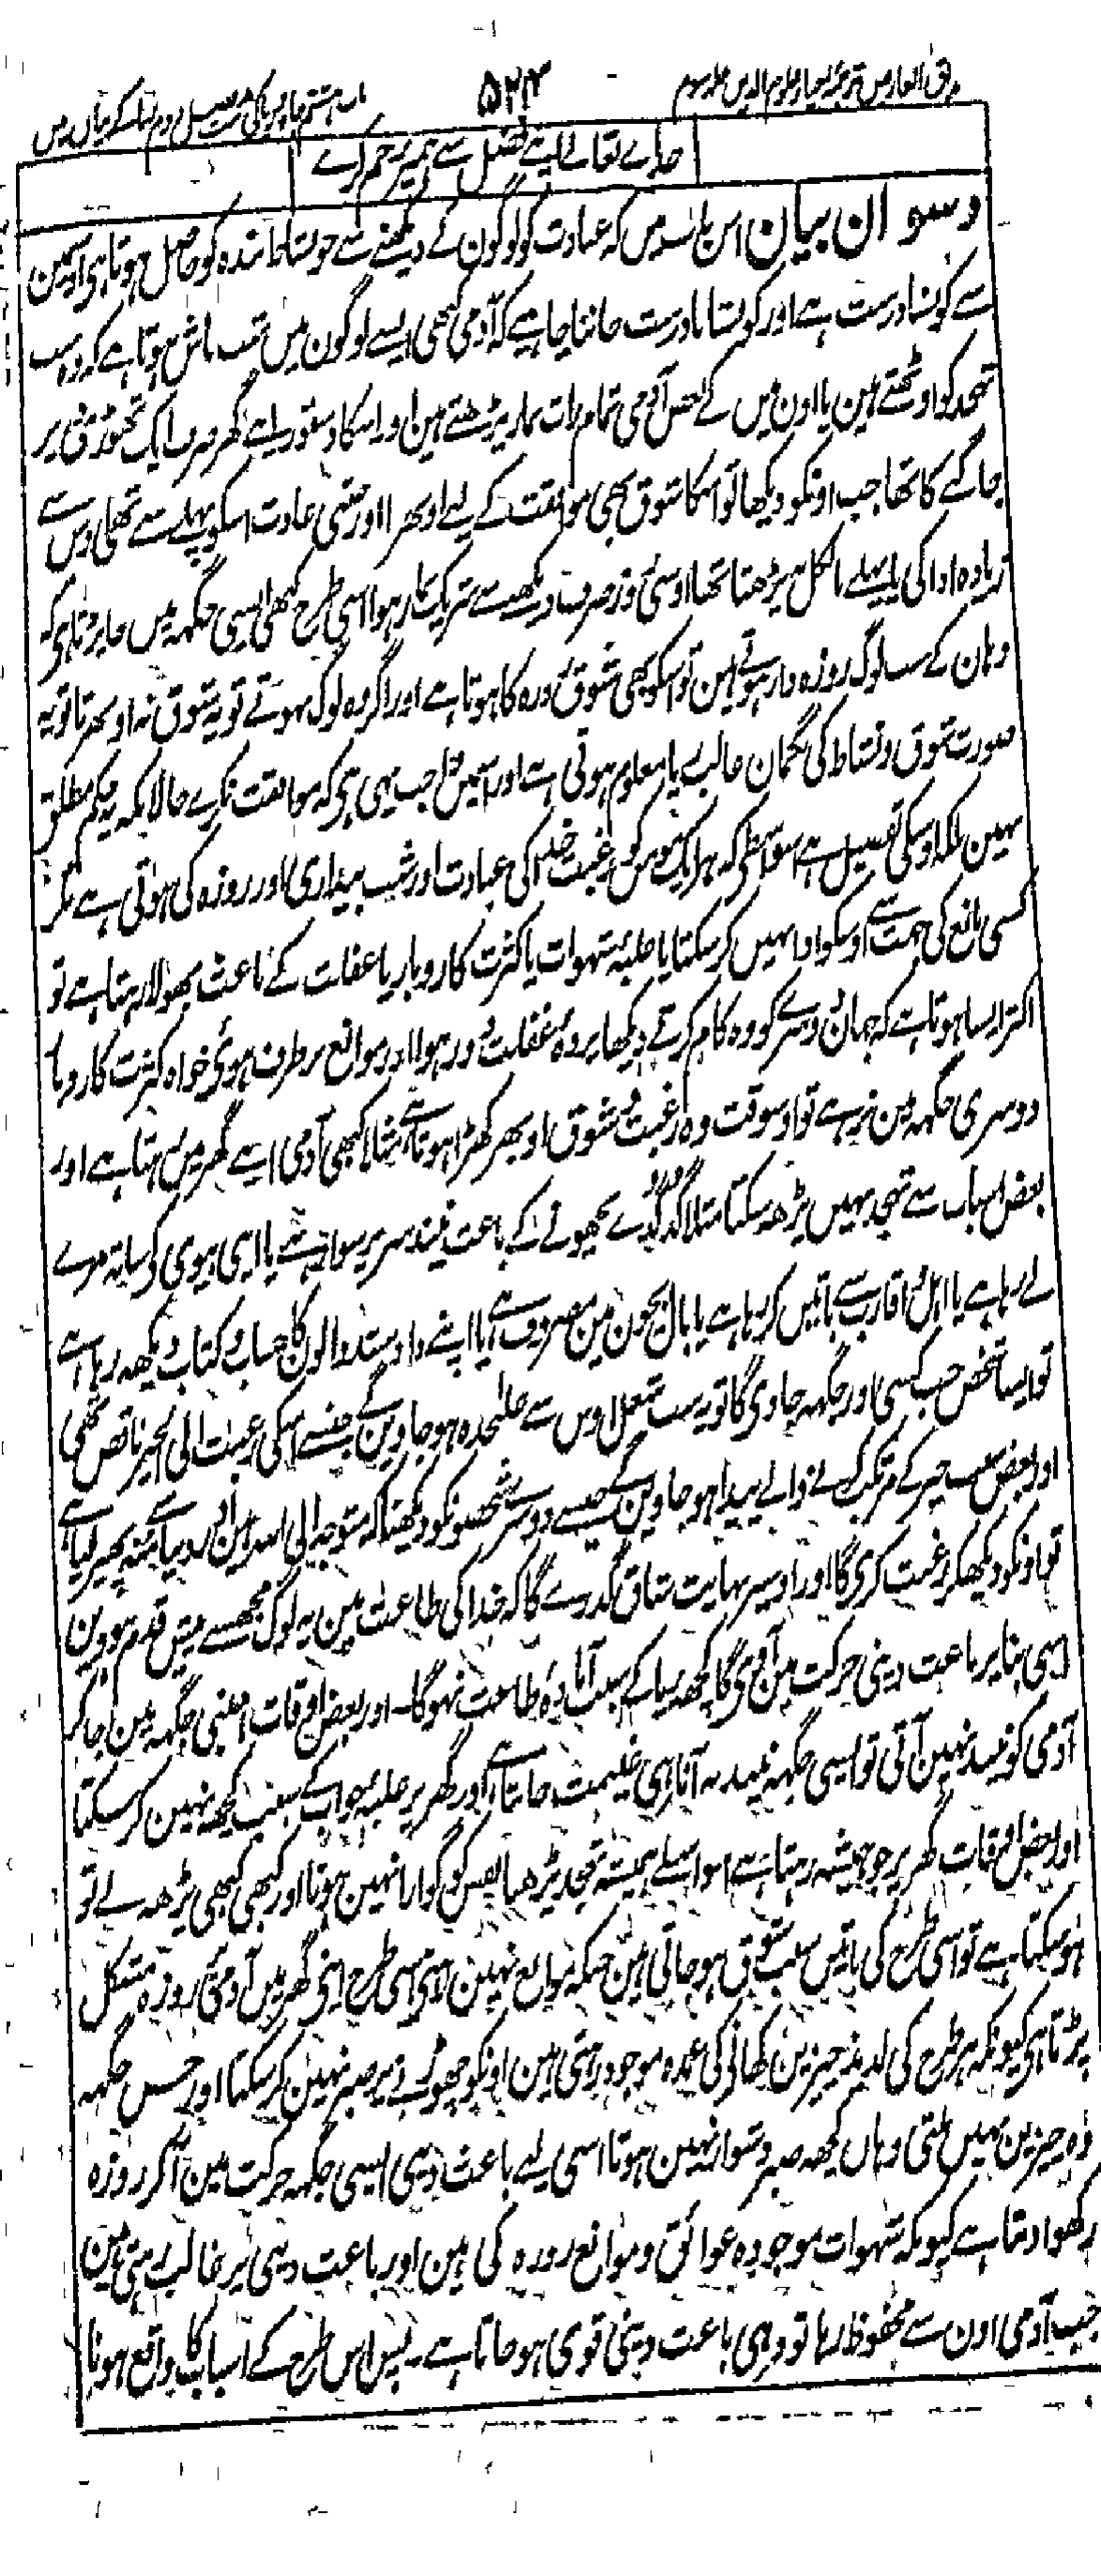 مذاق العارفین ترجمہ احیاء علوم الدین جلد سوم
۵۲۴
باب ہشتم جاہ و ریا کی مذمت فصل دوم ریا کے بیان میں
خداے تعالے اپنے فضل سے ہمپر رحم کرے
دسوان بیان اس باب میں کہ عبادت کو لوگون کے دیکھنے سے جو نشاط بندہ کو حاصل ہوتا ہی اسمین
سے کونسا درست ہے اور کونسا نادرست جاننا چاہیے کہ آدمی کبھی ایسے لوگون میں شب باش ہوتا ہے کہ وہ سب
تہجد کو اوٹھتے ہین یا اون میں کے بعض آدمی تمام رات نماز پڑھتے ہین اور اسکا دستور اپنے گھر صرف ایک تھوڑی دیر
جاگنے کا تھا جب اونکو دیکھا تو اسکا شوق بھی موافقت کے لیے اوبھرا اور جتنی عادت اسکو پہلے سے تھی اوس سے
زیادہ ادا کی یا پہلے بالکل نہ پڑھتا تھا اوسی روز صرف دیکھنے سے شریک کار ہوا اسی طرح کبھی ایسی جگہہ میں جا پڑتا ہی کہ
وہان کے سب لوگ روزہ دار ہوتے ہین تو اسکو بھی شوق روزہ کا ہوتا ہے اور اگر وہ لوگ نہوتے تو یہ شوق نہ اوبھرتا تو یہ
صورت شوق و نشاط کی بگمان غالب ریا معلوم ہوتی ہے اور اسمیں واجب یہی ہی کہ موافقت نکرے حالانکہ یہ حکم مطلق
نہین بلکہ اوسکی تفصیل ہے اسواسطے کہ ہر ایک مومن کو رغبت خدا کی عبادت اور شب بیداری اور روزہ کی ہوتی ہے مگر
کسی مانع کی جہت سے اوسکو ادا نہیں کر سکتا یا غلبۂ شہوات یا کثرت کاروبار یا غفلت کے باعث بھولا رہتا ہے تو
اکثر ایسا ہوتا ہے کہ جہان دوسرے کو وہ کام کرتے دیکھا پردۂ غفلت دور ہوا اور موانع برطرف ہوئے خواہ کثرت کاروبار
دوسری جگہہ مین نرہے تو اوسوقت وہ رغبت و شوق اوبھر کھڑا ہوتا ہے مثلا کبھی آدمی اپنے گھر میں رہتا ہے اور
بعض اسباب سے تہجد نہیں پڑھ سکتا مثلا گدگدے بچھونے کے باعث نیند سر پر سوار ہے یا اپنی بیوی کے ساتہ مزے
لے رہا ہے یا اہل و اقارب سے باتیں کر رہا ہے یا بال بچون مین مصروف ہے یا اپنے داد ستد والون کا حساب و کتاب دیکھہ رہا ہے
تو ایسا شخص جب کسی اور جگہہ جاویگا تو یہ سب شغل اوس سے علٰحدہ ہو جاوینگے جنسے اسکی رغبت الی الخیر ناقص تھی
اور بعض سبب خیر کے مرتکب کرنے والے پیدا ہو جاوینگے جیسے دوسرے شخصونکو دیکھنا کہ متوجہ الی اللہ ہین اور دنیا سے منہ پھیر لیا ہے
تو اونکو دیکھکر رغبت کریگا اور اوسپر نہایت شاق گذریگا کہ خدا کی طاعت مین یہ لوگ مجھسے پیش قدم ہووین
اسی بنا پر باعث دینی حرکت مین آویگا کچھہ ریا کے سبب آمادۂ طاعت نہوگا۔ اور بعض اوقات اجنبی جگہہ مین جاکر
آدمی کو نیند نہین آتی تو ایسی جگہہ نیند نہ آنا ہی غنیمت جانتا ہے اور گھر پر غلبۂ خواب کے سبب کچھہ نہین کر سکتا
اور بعض اوقات گھر پر جو ہمیشہ رہتا ہے اسواسطے ہمیشہ تہجد پڑھنا نفس کو گوارا نہین ہوتا اور کبھی کبھی پڑھ لے تو
ہو سکتا ہے تو اسی طرح کی باتیں سبب شوق ہو جاتی ہین جبکہ موانع نہین رہتے اسی طرح اپنی گھر میں آدمی کو روزہ مشکل
پڑتا ہی کیونکہ ہر طرح کی لذیذ چیزین کھانے کی عمدہ موجود رہتی ہین اونکو چھوڑنے پر صبر نہین کر سکتا اور جس جگہہ
وہ چیزین نہیں ملتی وہاں کچھہ صبر دشوار نہین ہوتا اسی لیے باعث دینی ایسی جگہہ حرکت مین آکر روزہ
رکھوا دیتا ہے کیونکہ شہوات موجودہ عوائق و موانع روزہ کی ہین اور باعث دینی پر غالب رہتی ہین
جب آدمی اون سے محفوظ رہا تو وہی باعث دینی قوی ہو جاتا ہے۔ پس اس طرح کے اسباب کا واقع ہونا